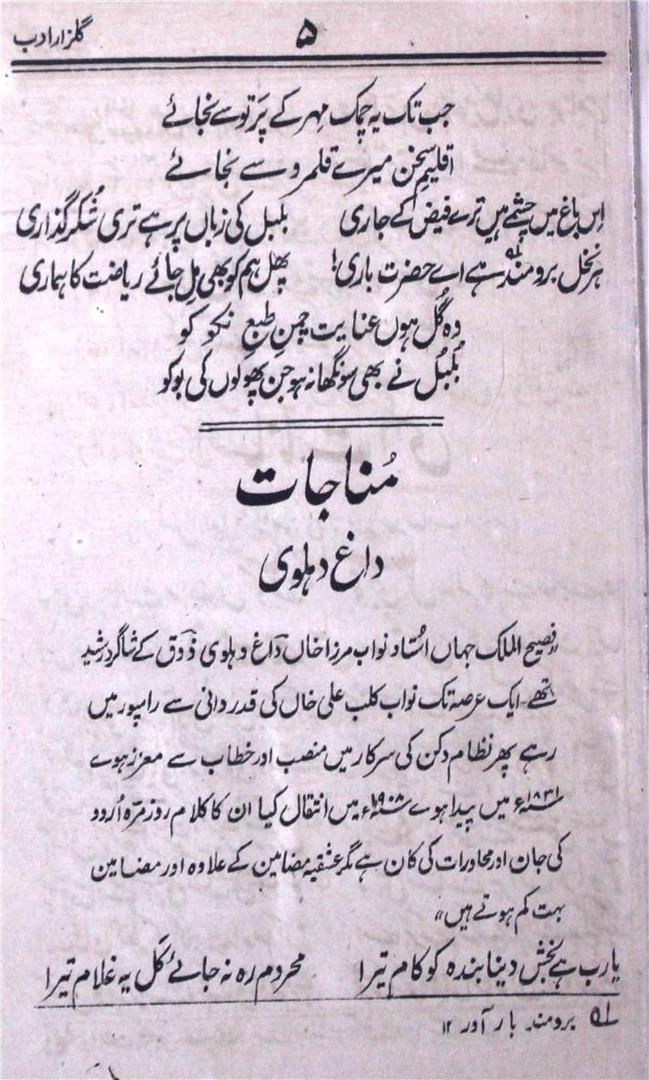 گلزار ادب ۵
جب تک یہ چمک مہر کے پرتو سے نجائے
اقلیمِ سخن میرے قلمرو سے نجائے
اِس باغ میں چشمے ہیں ترے فیض کے جاری بلبل کی زباں پر ہے تری شُکر گذاری
ہر نخل برومند لہ ہے اے حضرت باری! پھل ہم کو بھی مِل جائے ریاضت کا ہماری
وہ گُل ہوں عنایت چمنِ طبعِ نکو کو
بُلبُل نے بھی سونگھا نہ ہو جن پھولوں کی بو کو
مُناجات
داغ دہلوی
"فصیح الملک جہاں اُستاد نواب مرزا خاں داغ دہلوی ذوق کے شاگرد رشید
تھے۔ ایک عرصہ تک نواب کلب علی خاں کی قدردانی سے رامپور میں
رہے پھر نظام دکن کی سرکار میں منصب اور خطاب سے معزز ہوے
۱۸۳۱ء میں پیدا ہوے ۱۹۰۸ء میں انتقال کیا ان کا کلام روزمرّہ اُردو
کی جان اور محاورات کی کان ہے مگر عشقیہ مضامین کے علاوہ اور مضامین
بہت کم ہوتے ہیں"
یارب ہے بخش دینا بندہ کو کام تیرا محروم رہ نہ جائے کَل یہ غلام تیرا
لہ برومند۔ بار آور ۱۲